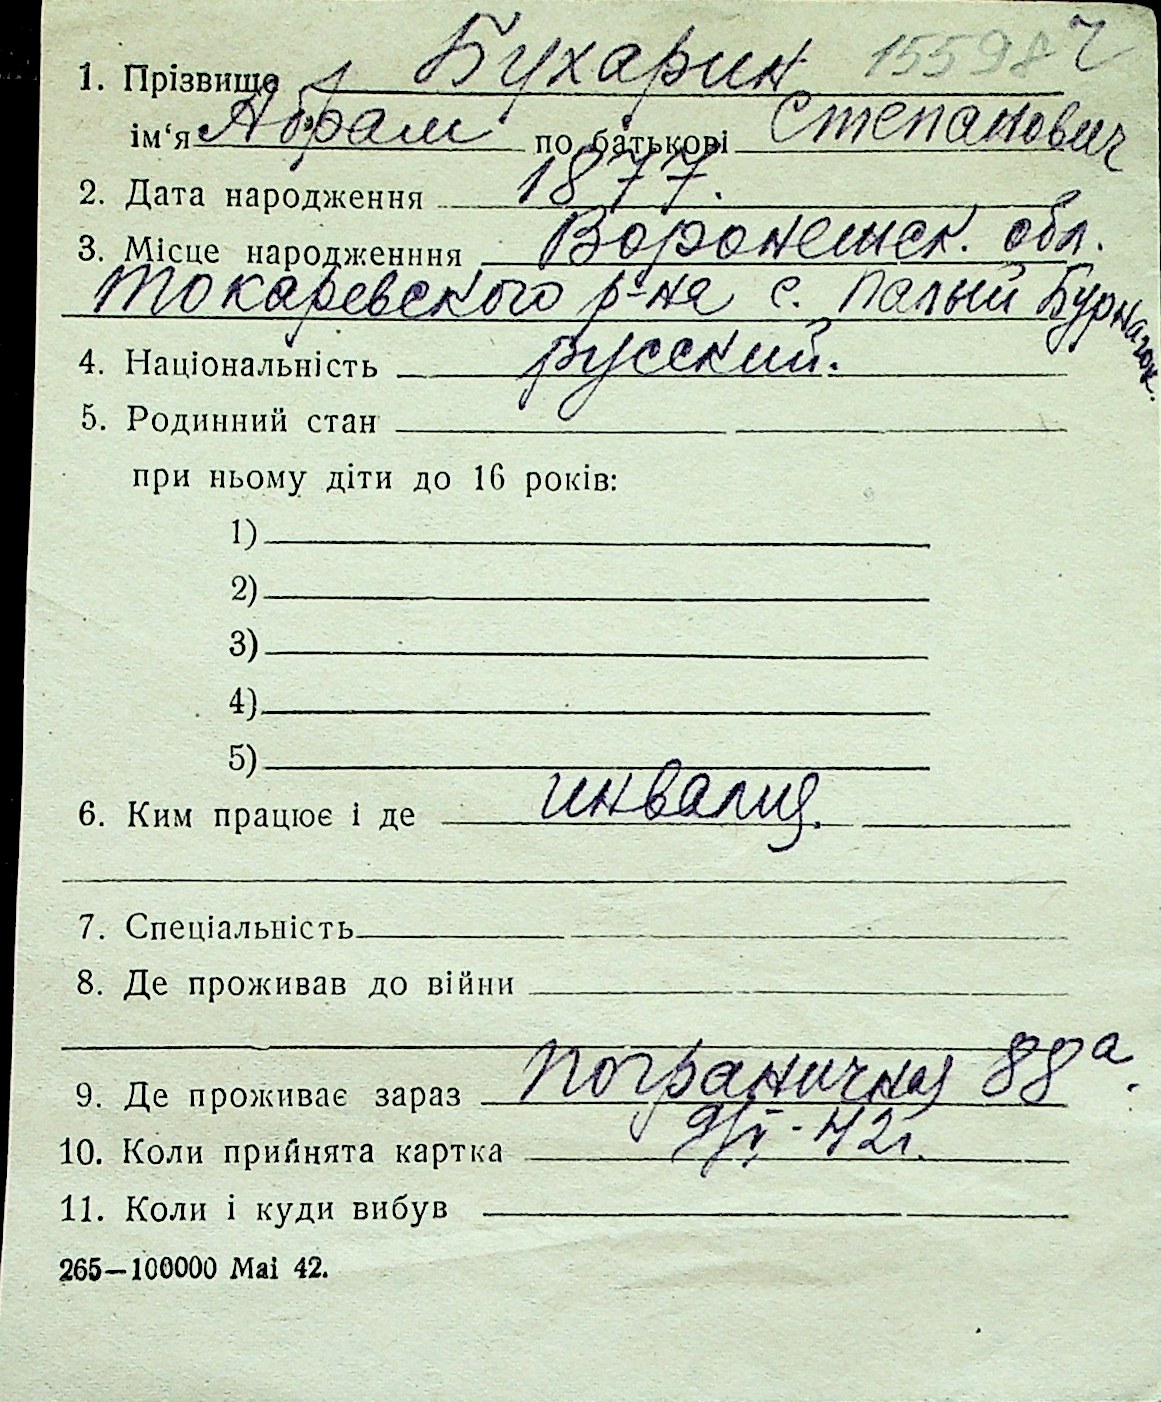 15598 ч
1. Прізвище Бухарин
ім‘я Абрам по батькові Степанович
2. Дата народження 1877.
3. Місце народженння Воронешск. обл.
Токаревского р-на с. Малый Бурначок.
4. Національність русский.
5. Родинний стан
при ньому діти до 16 років:
1)
2)
3)
4)
5)
6. Ким працює і де инвалид.
7. Спеціальність
8. Де проживав до війни
9. Де проживає зараз Пограничная 88а.
10. Коли прийнята картка 42г.
11. Коли і куди вибув
265—100000 Маі 42.